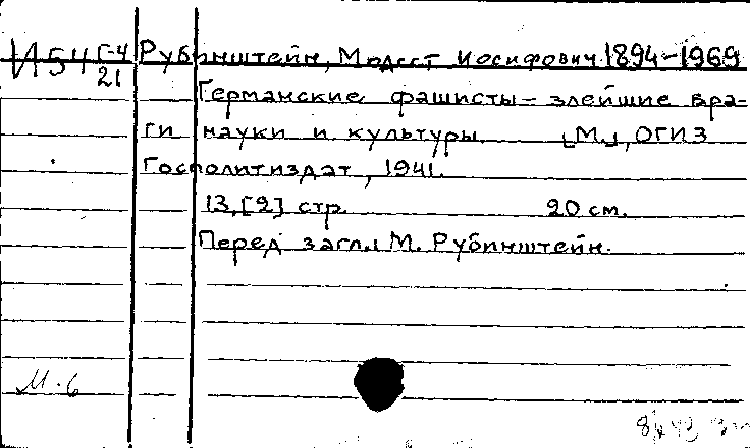 И54 Г-4 Рубинштейн, Модест Иосифович 1894-1969
21
Германские фашисты - злейшие вра-
ги науки и культуры. [М.], ОГИЗ
Госполитиздат, 1941.
13, [2] стр. 20 см.
Перед загл.: М. Рубинштейн.
М-6